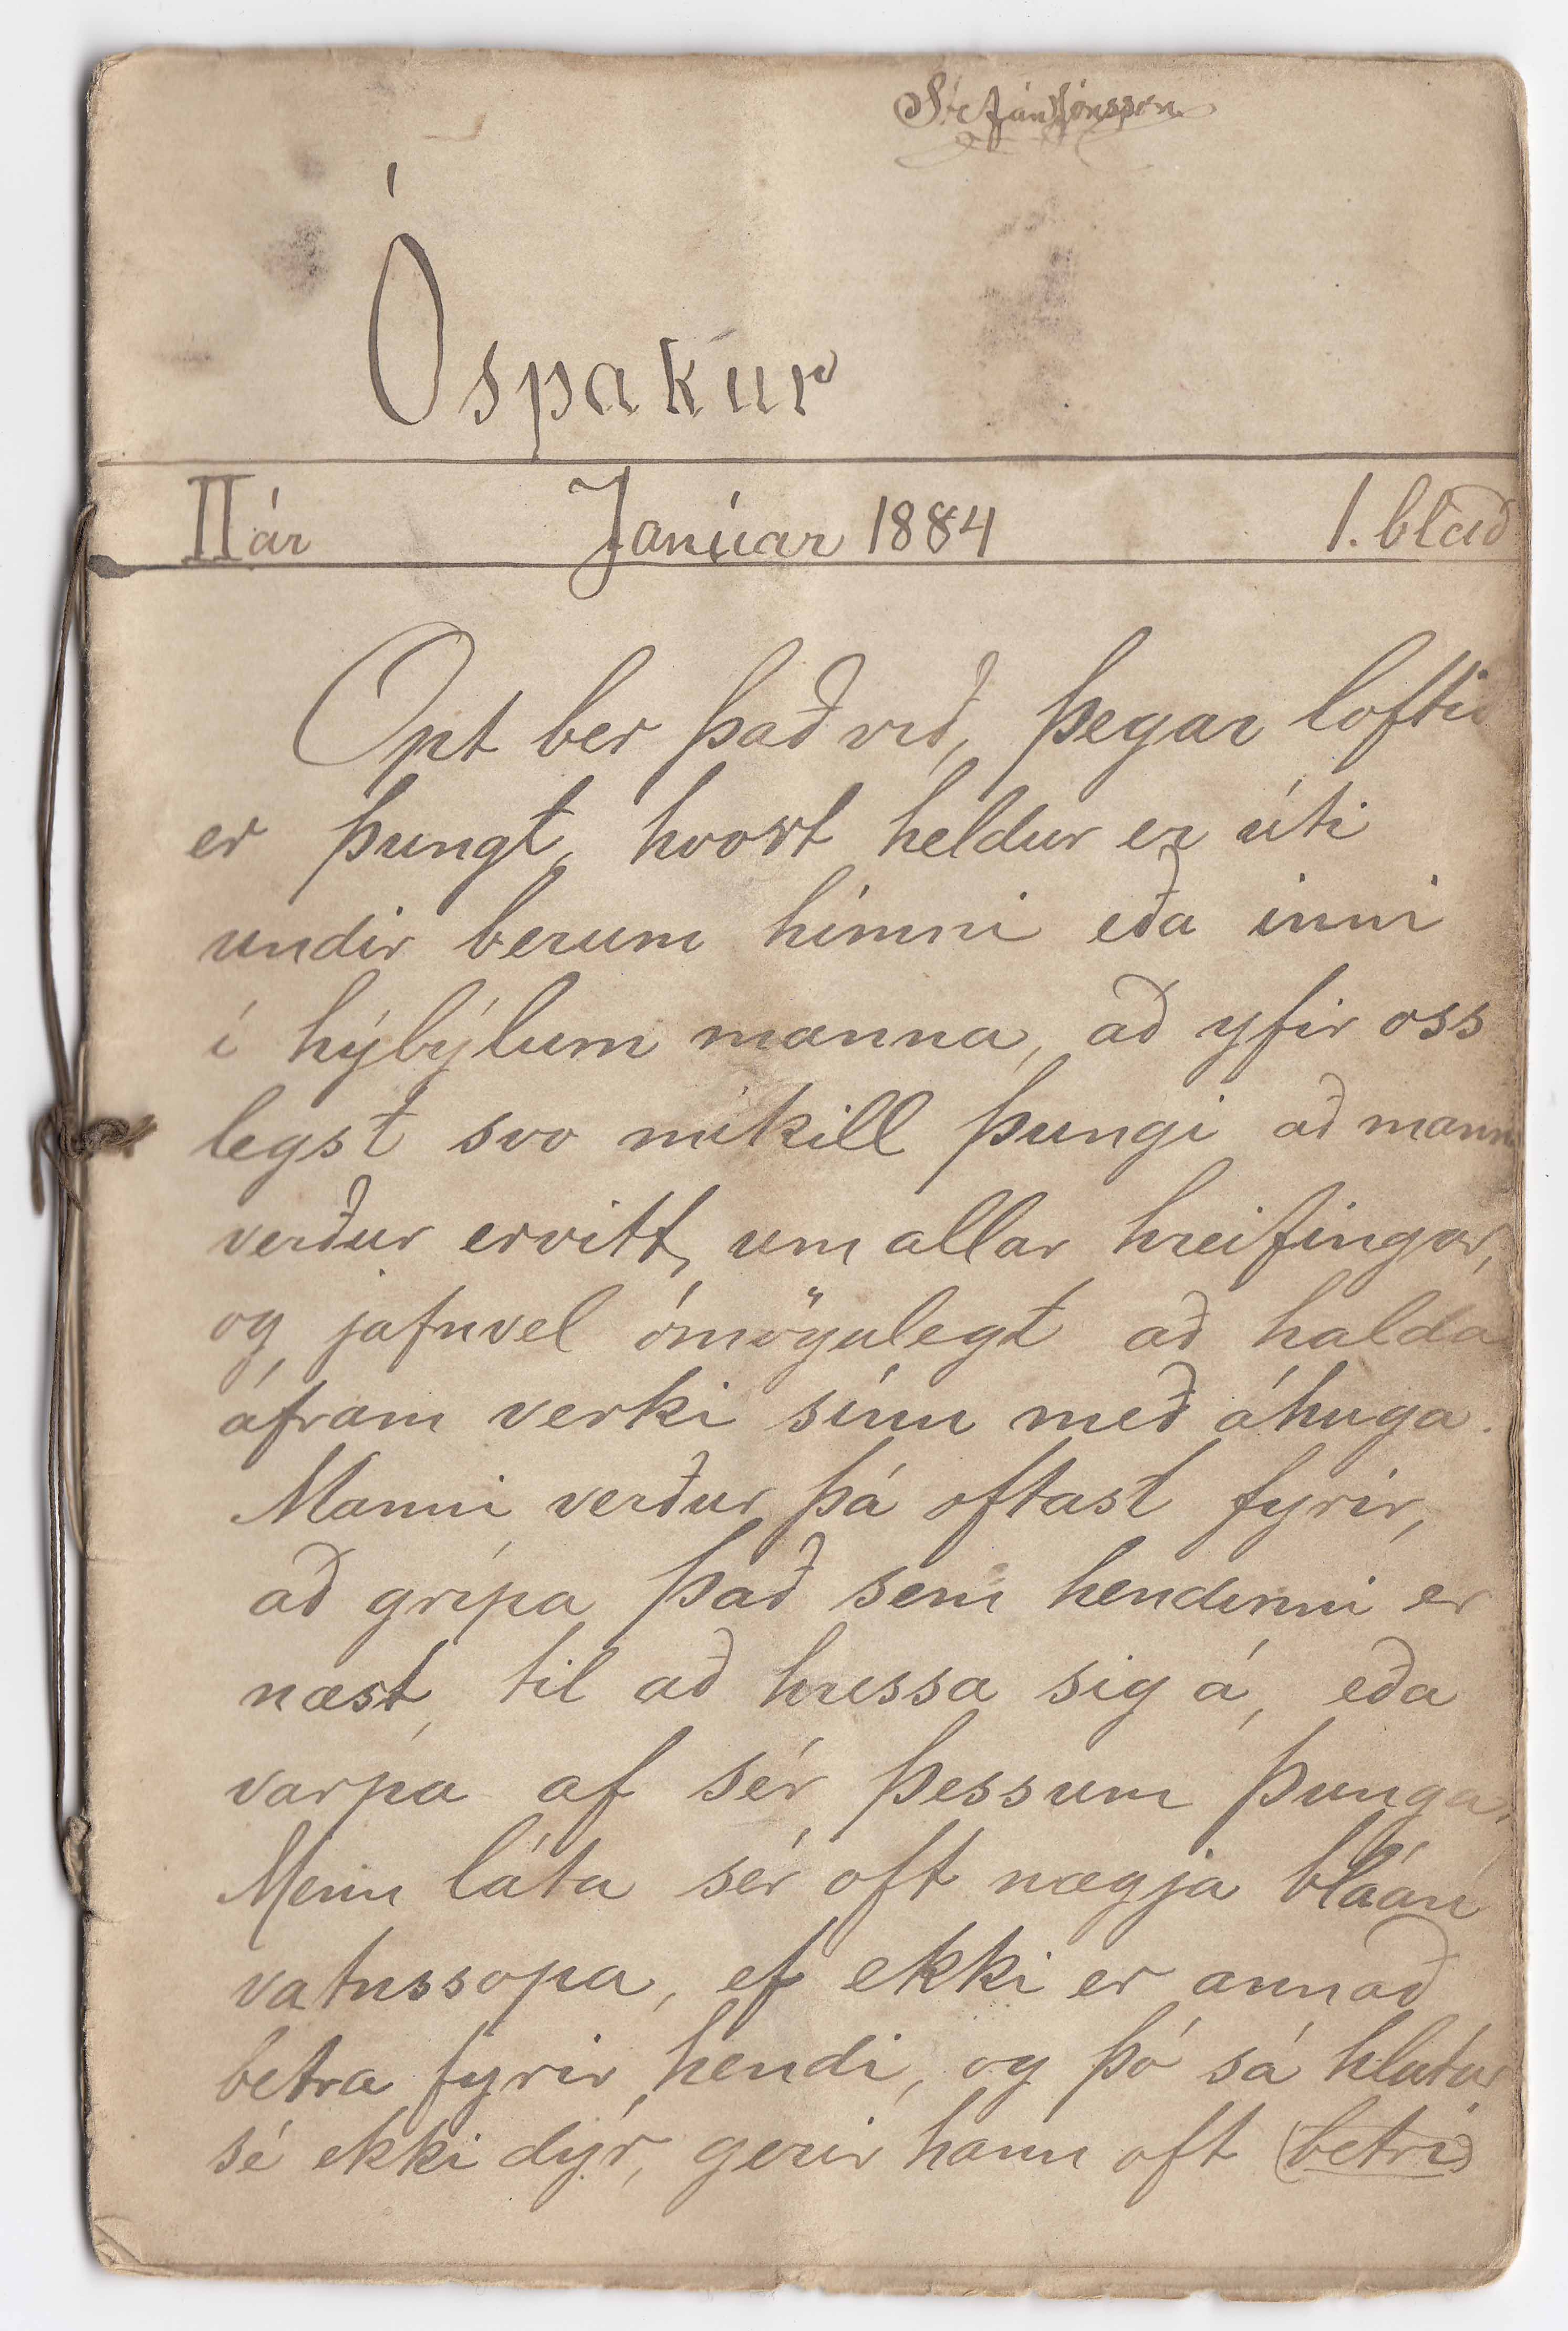 Stefán Jónsson
Óspakur
II ár Janúar 1884 1. blað
Opt ber það við, þegar loftið
er þungt, hvort heldur er úti
undir berum himni eða inni
í hýbýlum manna, að yfir oss
legst svo mikill þungi að manni
verður ervitt, um allar hreifingar,
og jafnvel ómögulegt að halda
áfram verki sínu með áhuga.
Manni verður þá oftast fyrir,
að grípa það sem hendinni er
næst, til að hressa sig á, eða
varpa af sér þessum þunga.
Menn láta sér oft nægja bláan
vatnssopa, ef ekki er annað
betra fyrir hendi, og þó sá hlutur
sé ekki dýr, gerir hann oft (betri)